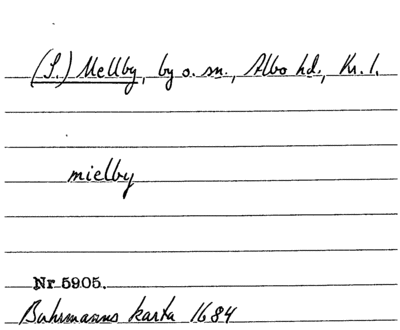 (S.) Mellby, by o. sn., Albo hd., Kr. l.
mielby
Nr 5905.
Buhrmanns karta 1684